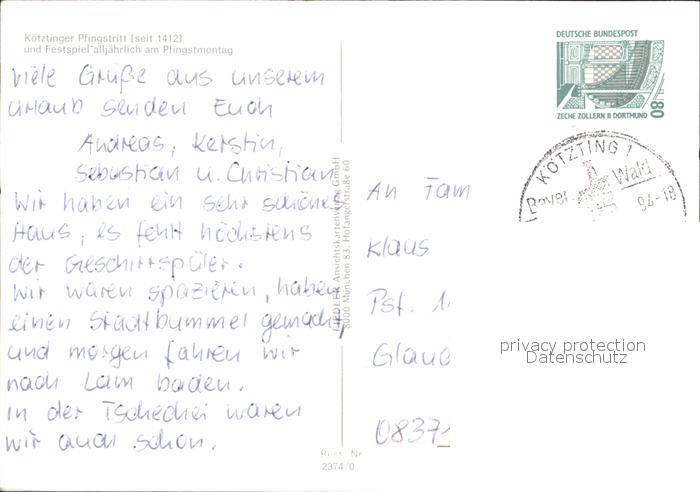 Kötztinger Pfingstritt (seit 1412)
und Festspiel alljährlich am Pfingstmontag
Viele Grüße aus unserem
Urlaub senden Euch
Andreas, Kerstin,
Sebastian u. Christian
Wir haben ein sehr schönes
Haus, es fehlt höchstens
der Geschirrspüler.
Wir waren spazieren, haben
einen Stadtbummel gemacht,
und morgen fahren wir
nach Lam baden.
In der Tschechei waren
wir auch schon.
FIEDLER Ansichtskartenverlag GmbH
8000 München 83, Hofangerstraße 60
Best. Nr
2374/0
DEUTSCHE BUNDESPOST
80
ZECHE ZOLLERN II DORTMUND
KÖTZTING 1
Bayer. Wald
94-18
An Fam
Klaus
Psf. 1
Glauc
0837
privacy protection
Datenschutz